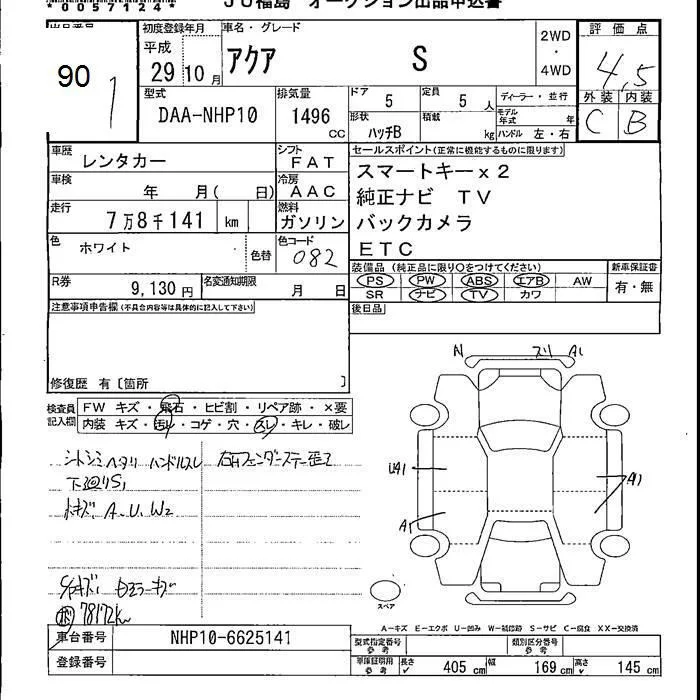 *0057124*
JU福島 オークション出品申込書
出品番号 初度登録年月 車名・グレード 評価点
90 1 平成 29 10 月 アクア S 2WD ・ 4WD 4.5
型式 排気量 ドア 定員 ディーラー・並行 外装 内装
DAA-NHP10 1496 CC 5 5 人 モデル年式 年 C B
形状 ハッチB 積載 kg ハンドル 左・右
車歴 レンタカー シフト FAT セールスポイント(正常に機能するものに限ります)
車検 年 月( 日) 冷房 AAC スマートキーx2
走行 7万8千141 km 燃料 ガソリン 純正ナビ TV
バックカメラ
色 ホワイト 色替 色コード 082 ETC
R券 9,130 円 名変通知期限 月 日 装備品(純正品に限り○をつけてください) 新車保証書
PS PW ABS エアB AW 有・無
SR ナビ TV カワ
注意事項申告欄(不具合内容等は具体的に記入して下さい) 後日品
修復歴 有〔箇所 〕
検査員記入欄 FW キズ・飛石・ヒビ割・リペア跡・×要
内装 キズ・汚れ・コゲ・穴・スレ・キレ・破レ
シートシミヘタリ ハンドルスレ 右Hフェンダーステー歪ミ
下廻りS1
小キズ A、U、W2
78172km
A スリ A1
UA1 A1
A1
スペア
A-キズ E-エクボ U-凹み W-補修跡 S-サビ C-腐食 XX-交換済
車台番号 NHP10-6625141 型式指定番号 参考 類別区分番号 参考
登録番号 車庫証明用 参考 長さ 405 cm 幅 169 cm 高さ 145 cm